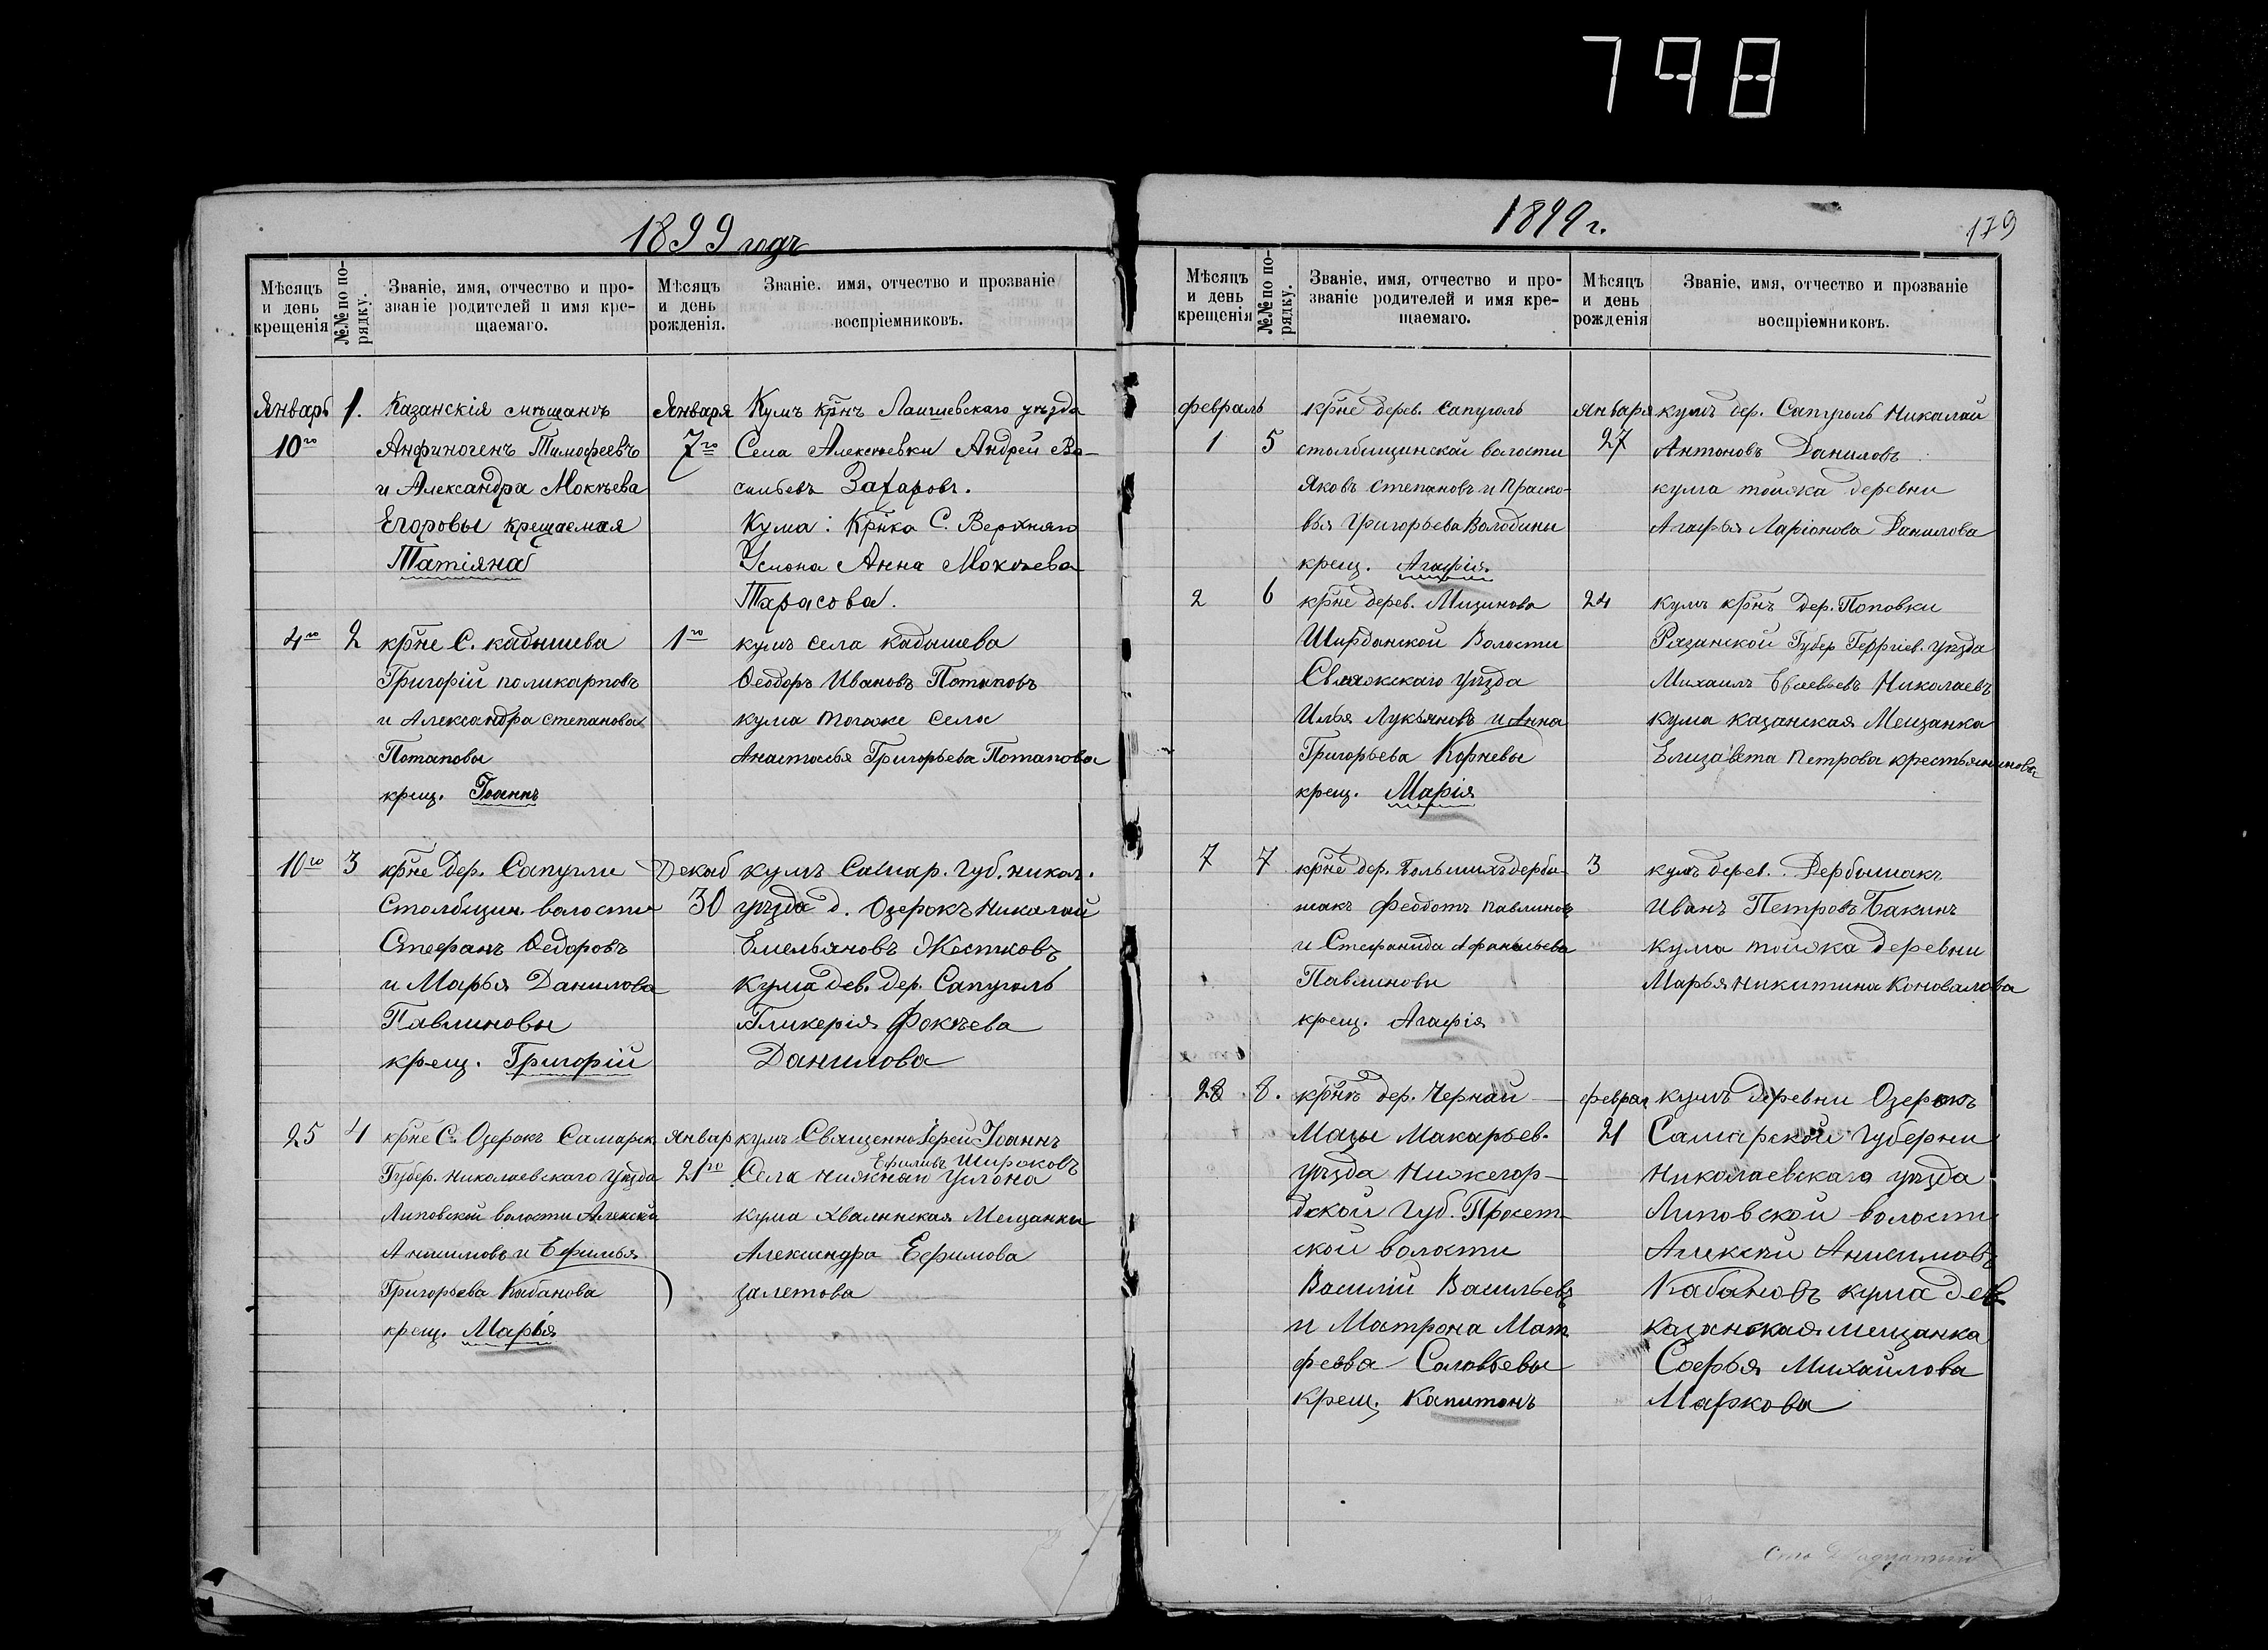 798
1899 годъ
Мѣсяцъ и день крещенія
№№ по порядку.
Званіе, имя, отчество и про-
званіе родителей и имя кре-
щаемаго.
Мѣсяцъ и день рожденія.
Званіе, имя, отчество и прозваніе
воспріемниковъ.
Январь 1. Казанскія мѣщанъ Января Кумъ кр̃нъ Лаишевскаго уѣзда
10го Анфиногенъ Тимофеевъ 7го Села Алексѣевки Андрей Ва-
и Александра Мокѣева сильевъ Захаровъ.
Егоровы крещаемая Кума: Кр̃нка С. Верхняго
Татіяна Услона Анна Мокѣева
Тарасова.
4го 2 кр̃не С. Кадышева 1го кумъ села Кадышева
Григорій Поликарповъ Ѳеодоръ Ивановъ Потаповъ
и Александра Степанова кума тогоже села
Потаповы Анастасья Григорьева Потапова
крещ. Іоаннъ
10го 3 кр̃не дер. Сапугли Декаб кумъ Самар. Губ. Никол.
Столбищин. волости 30 уѣзда д. Озерокъ Николай
Стефанъ Ѳедоровъ Емельяновъ Жестковъ
и Марья Данилова Кума дев. дер. Сапуголь
Павлиновы Гликерія Фокѣева
крещ. Григорій Данилова
25 4 кр̃не С. Озерокъ Самарск. Январ кумъ Священно Іерей Іоаннъ
Ефимовъ Широковъ
Губер. Николаевскаго Уѣзда 21го Села Нижный Услона
Липовской волости Алексѣй кума Хвалынская Мещанка
Анисимовъ и Ефимья Александра Ефимова
Григорьева Кабанова Залетова
крещ. Марья
1899 г.
179
Мѣсяцъ и день крещенія
№№ по порядку.
Званіе, имя, отчество и про-
званіе родителей и имя кре-
щаемаго.
Мѣсяцъ и день рожденія
Званіе, имя, отчество и прозваніе
воспріемниковъ.
февраль кр̃не дерев. Сапуголь января кумъ дер. Сапуголь Николай
1 5 столбищинской волости 27 Антоновъ Даниловъ
Яковъ Степановъ и Праско- кума тойжа деревни
вья Григорьева Володины Агафья Ларіонова Данилова
крещ. Агафія.
2 6 кр̃не дерев. Мизинова 24 кумъ кр̃нъ дер. Поповки
Ширданской Волости Рязанской Губер уѣзда
Свіяжскаго уѣзда Михаилъ Николаевъ
Илья Лукьяновъ и Анна кума казанская Мещанка
Григорьева Корневы Елизавета Петрова крестьянинова
крещ. Марія
7 7 кр̃не дер. Большихъ дерби- 3 кумъ дерев. Дербышакъ
шакъ Феодотъ Павлиновъ Иванъ Петровъ Бакинъ
и Стефанида Афанасьева кума тойжка деревни
Павлиновы Марья Никитина Коновалова
крещ. Агафія
28 8. кр̃нъ дер. Чернай феврал кумъ деревни Озерокъ
Мазы Макарьев. 21 Самарской губерни
уѣзда Нижегор- Николаевскаго уѣзда
дской Губ. Липовской волости
ской волости Алексѣй Анисимовъ
Василій Васильевъ Кабановъ кума дев
и Матрона Мат казанская мещанка
феева Соловьевы Софья Михайлова
крещ. Капитонъ Маркова